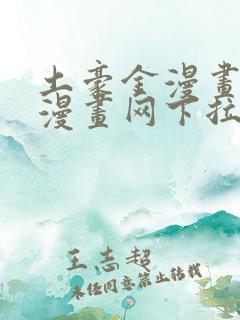 土豪金漫畫
漫畫网下拉
王志超
未经同意禁止转载